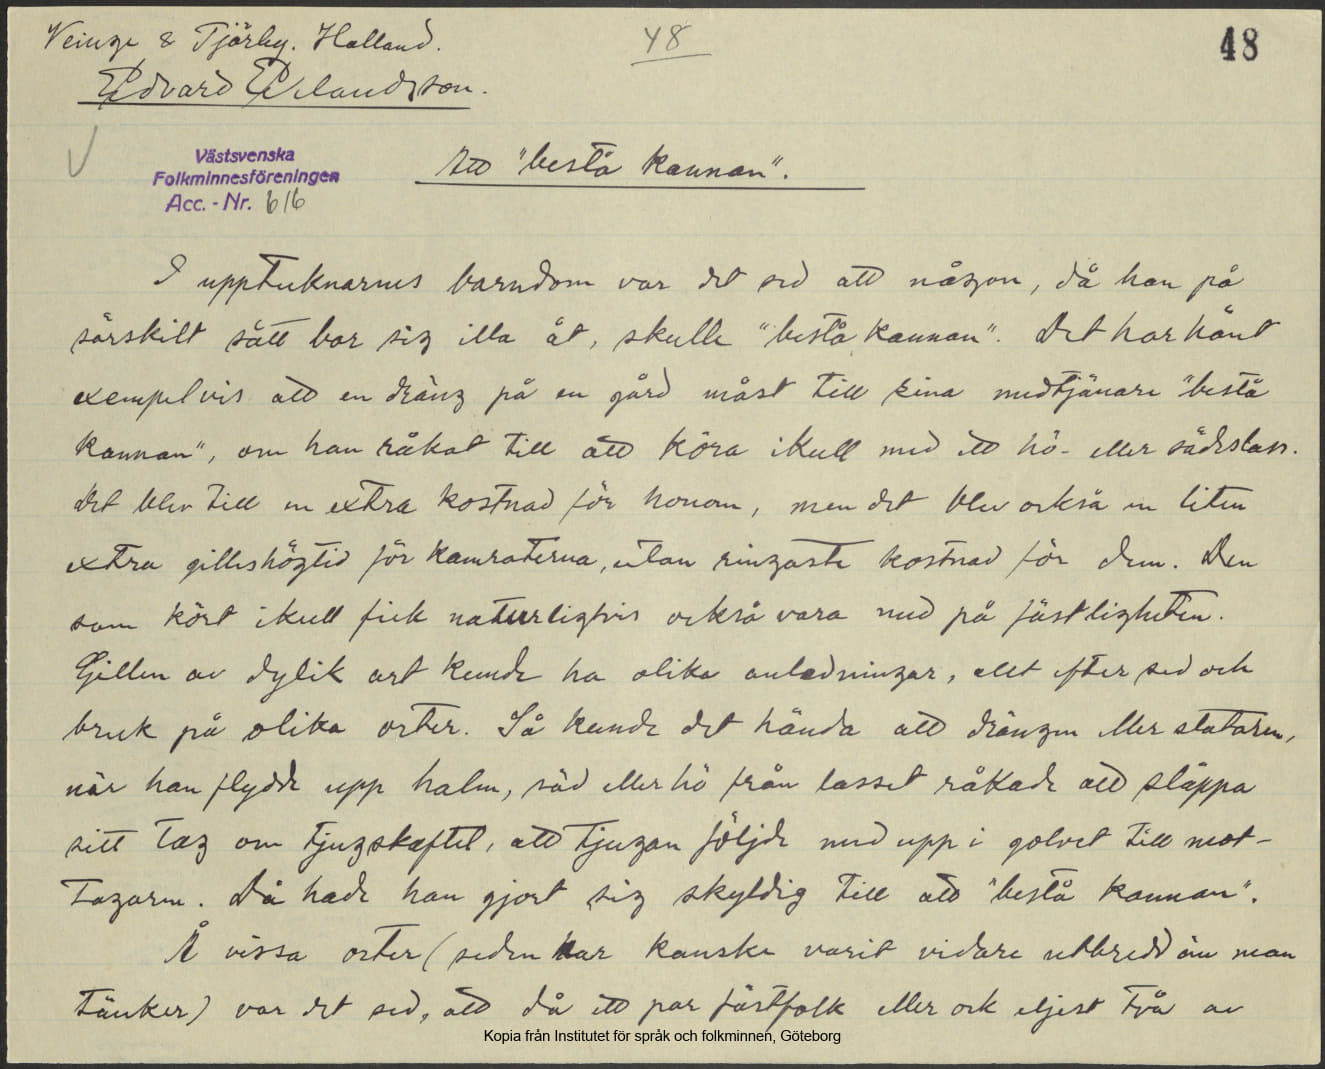 Veinge & Tjärby. Halland.
48
48
Edvard Erlandsson.
Västsvenska
Folkminnesföreningen
Acc. - Nr. 616
Att "bestå kannan".
I upptecknarnes barndom var det sed att någon, då han på
särskilt sätt bar sig illa åt, skulle "bestå kannan". Det har hänt
exempelvis att en dräng på en gård måst till sina medtjänare "bestå
kannan", om han råkat till att köra ikull med ett hö- eller sädeslass.
Det blev till en extra kostnad för honom, men det blev också en liten
extra gilleshögtid för kamraterna, utan ringaste kostnad för dem. Den
som kört ikull fick naturligtvis också vara med på fästligheten.
Gillen av dylik art kunde ha olika anledningar, allt efter sed och
bruk på olika orter. Så kunde det hända att drängen eller stataren,
när han flydde upp halm, säd eller hö från lasset råkade att släppa
sitt tag om tjugskaftet, att tjugan följde med upp i golvet till mot-
tagaren. Då hade han gjort sig skyldig till att "bestå kannan".
Å vissa orter (seden har kanske varit vidare utbredd än man
tänker) var det sed, att då ett par fästfolk eller ock eljest två av
Kopia från Institutet för språk och folkminnen, Göteborg